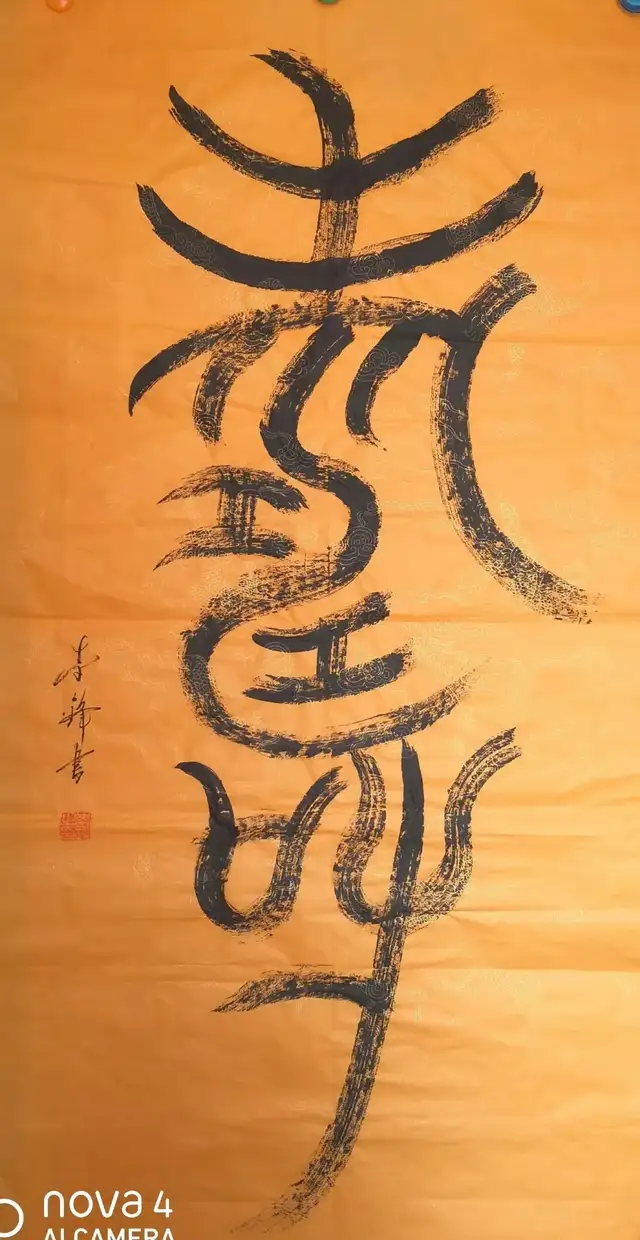 壽
锋书
nova 4
AI CAMERA